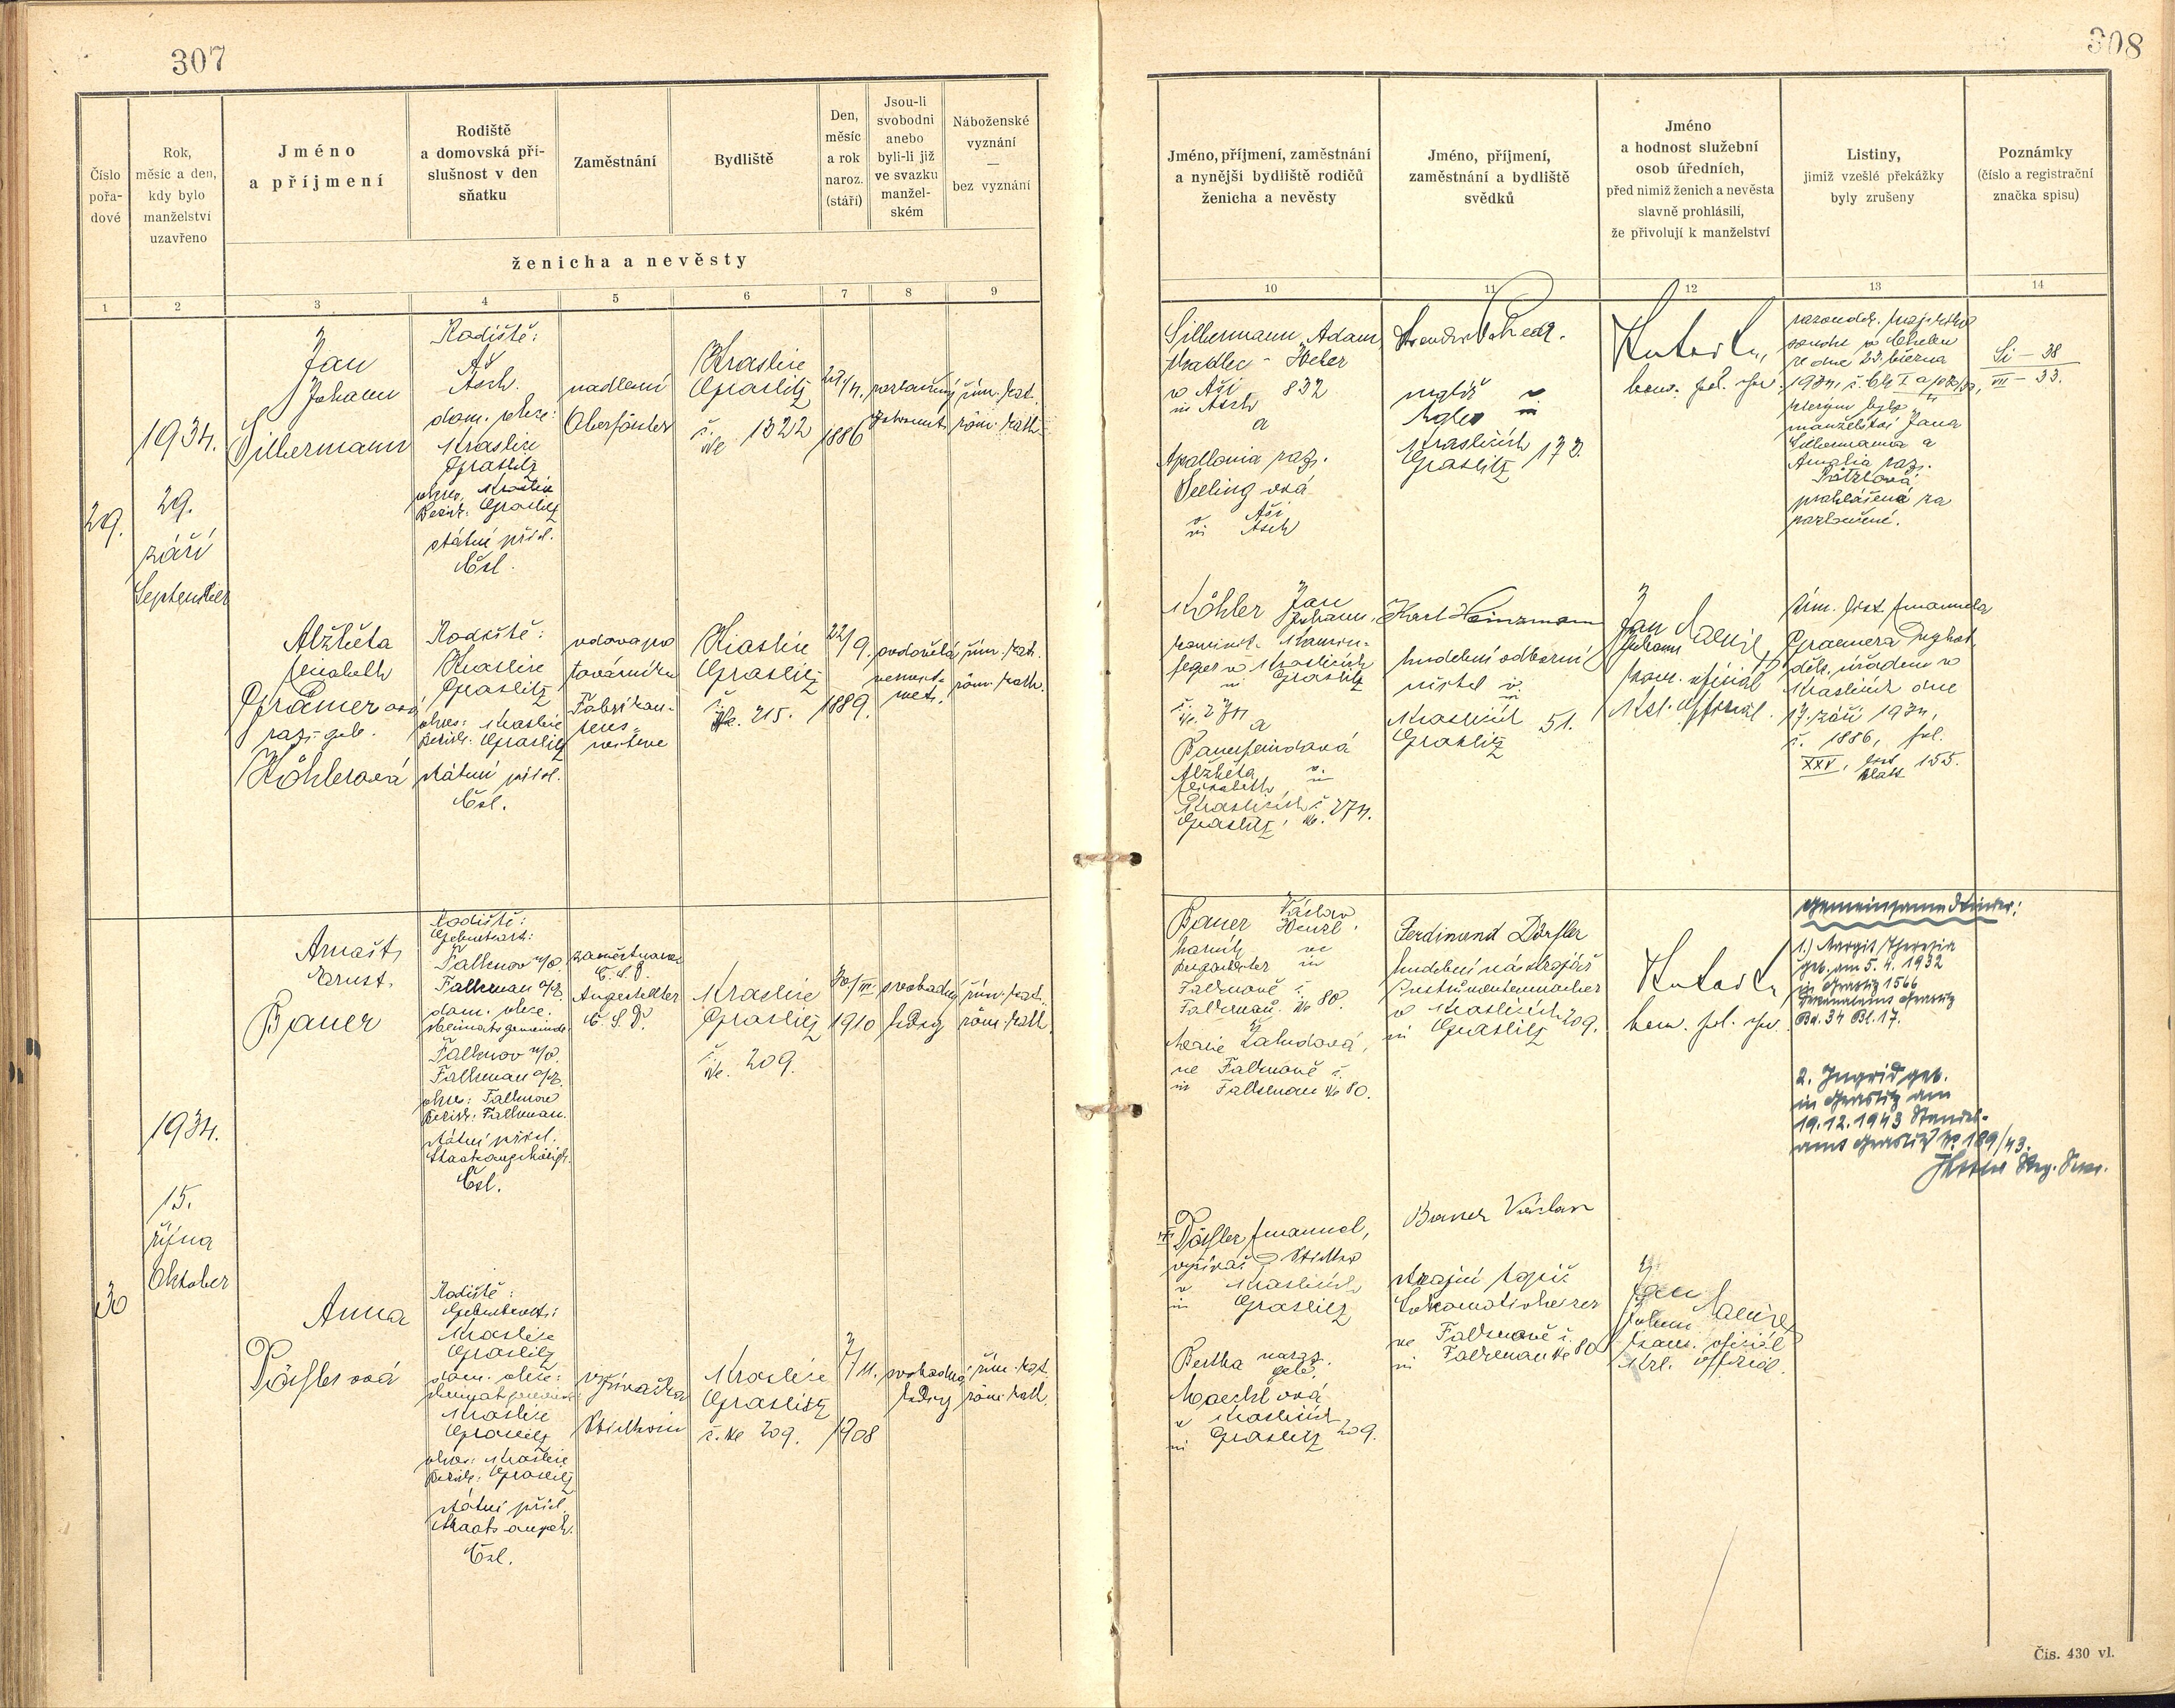 307
308
Číslo
pořa-
dové
Rok,
měsíc a den,
kdy bylo
manželství
uzavřeno
Jméno
a příjmení
Rodiště
a domovská pří-
slušnost v den
sňatku
Zaměstnání
Bydliště
Den,
měsíc
a rok
naroz.
(stáří)
Jsou-li
svobodni
anebo
byli-li již
ve svazku
manžel-
ském
Náboženské
vyznání
—
bez vyznání
ženicha a nevěsty
Jméno, příjmení, zaměstnání
a nynější bydliště rodičů
ženicha a nevěsty
Jméno, příjmení,
zaměstnání a bydliště
svědků
Jméno
a hodnost služební
osob úředních,
před nimiž ženich a nevěsta
slavně prohlásili,
že přivolují k manželství
Listiny,
jimiž vzešlé překážky
byly zrušeny
Poznámky
(číslo a registrační
značka spisu)
1 2 3 4 5 6 7 8 9
10 11 12 13 14
29.
1934.
29.
září
September
Jan
Johann
Silbermann
Rodiště:
Aš
Asch.
dom. obce:
Kraslice
Graslitz
okres. Kraslice
Bezirk: Graslitz
státní přísl.
Čsl.
nadlesní
Oberförster
Kraslice
Graslitz
č.
No 1322
1886
rozloučený
getrennt.
řím. kat.
röm. kath.
Silbermann, Adam,
tkadlec - Weber
v Aši 832
in Asch
a
Apollonia roz.
Seeling ová
v Aši
in Asch
v
in
Kraslicích
Graslitz 172.
kterým bylo
manželství Jana
Silbermanna a
Amalia roz.
prohlášená za
rozloučené.
Si - 38
VII - 33.
Alžběta
Elisabeth
Gramer ová
roz. geb.
Köhlerová
Rodiště:
Kraslice
Graslitz
okres: Kraslice
Bezirk: Graslitz
státní přísl.
Čsl.
vdova po
továrníku
Fabrikan-
tens-
witwe
Kraslice
Graslitz
č.
No. 215.
22/9.
1889.
ovdovělá
verwit-
wet.
řím. kat.
röm. kath.
Köhler Jan
Johann,
kominík - Kamin-
feger v Kraslicích
in Graslitz
č.
No. 274
a
Alžběta v
Elisabeth in
Kraslicích č. 274.
Graslitz, No.
Karl Heinzmann
hudební odborný
učitel v
in
Kraslicích 51.
Graslitz
Jan
Johann
kom. oficiál
Kzl. Offizial.
Úm. list Emanuela
Gramera
děk. úřadem v
Kraslicích dne
17. září 1934,
č. 1886, fol.
XXV, list 155.
Blatt
30
1934.
15.
října
Oktober
Arnošt,
Ernst.
Bauer
Rodiště:
Geburtsort:
Falknov n/O.
Falkenau a/E.
dom. obce.
Heimatsgemeinde
Falknov n/O.
Falkenau a/E.
okres: Falknov
Bezirk: Falkenau.
státní přísl.
Staatsangehörigk.
Čsl.
zaměstnanec
Č. S. D.
Angestellter
Č. S. D.
Kraslice
Graslitz
č.
No. 209.
30/III.
1910
svobodný
ledig
řím. kat.
röm. kath.
Bauer Václav
Wenzl.
horník ve
Bergarbeiter in
Falknově č.
Falkenau. No 80.
Marie
ve Falknově č.
in Falkenau No 80.
Ferdinand Dörfler
hudební nástrojář
Instrumentenmacher
v Kraslicích 209.
in Graslitz
Gemeinsame Kinder:
1.) Margit Theresia
geb. am 5. 4. 1932
in Graslitz 1566
Bd. 34 Bl. 17.
2. Ingrid geb.
in Graslitz am
19.12.1943 Standes-
amt Graslitz No 189/43.
Anna
Dörfler ová
Rodiště:
Geburtsort:
Kraslice
Graslitz
dom. obce:
Heimatsgemeinde:
Kraslice
Graslitz
okres: Kraslice
Bezirk: Graslitz
státní přísl.
Staatsangeh.
Čsl.
vyšívačka
Stickerin
Kraslice
Graslitz
č. No 209.
7/11.
1908
svobodná
ledig
řím. kat.
röm. kath.
Dörfler Emanuel,
vyšívač - Sticker
v Kraslicích
in Graslitz
Bertha naroz.
geb.
v Kraslicích
in Graslitz 209.
Bauer Václav
strojní topič
Lokomotivheizer
ve Falknově č.
in Falkenau No 80
Jan
Johann
kanc. oficiál
Kzl. Offizial.
Čís. 430 vl.